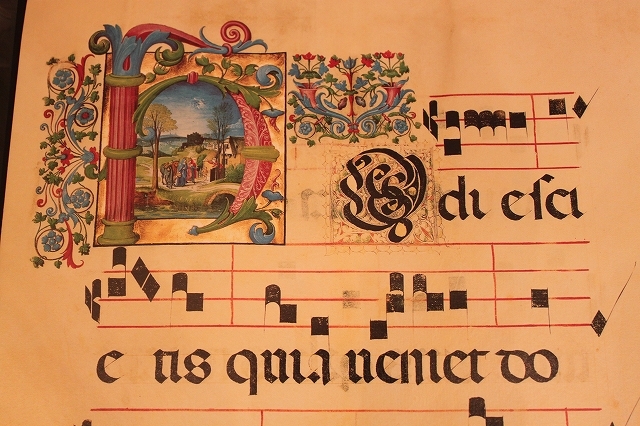 HO di e ſci
e tis quia ueniet do